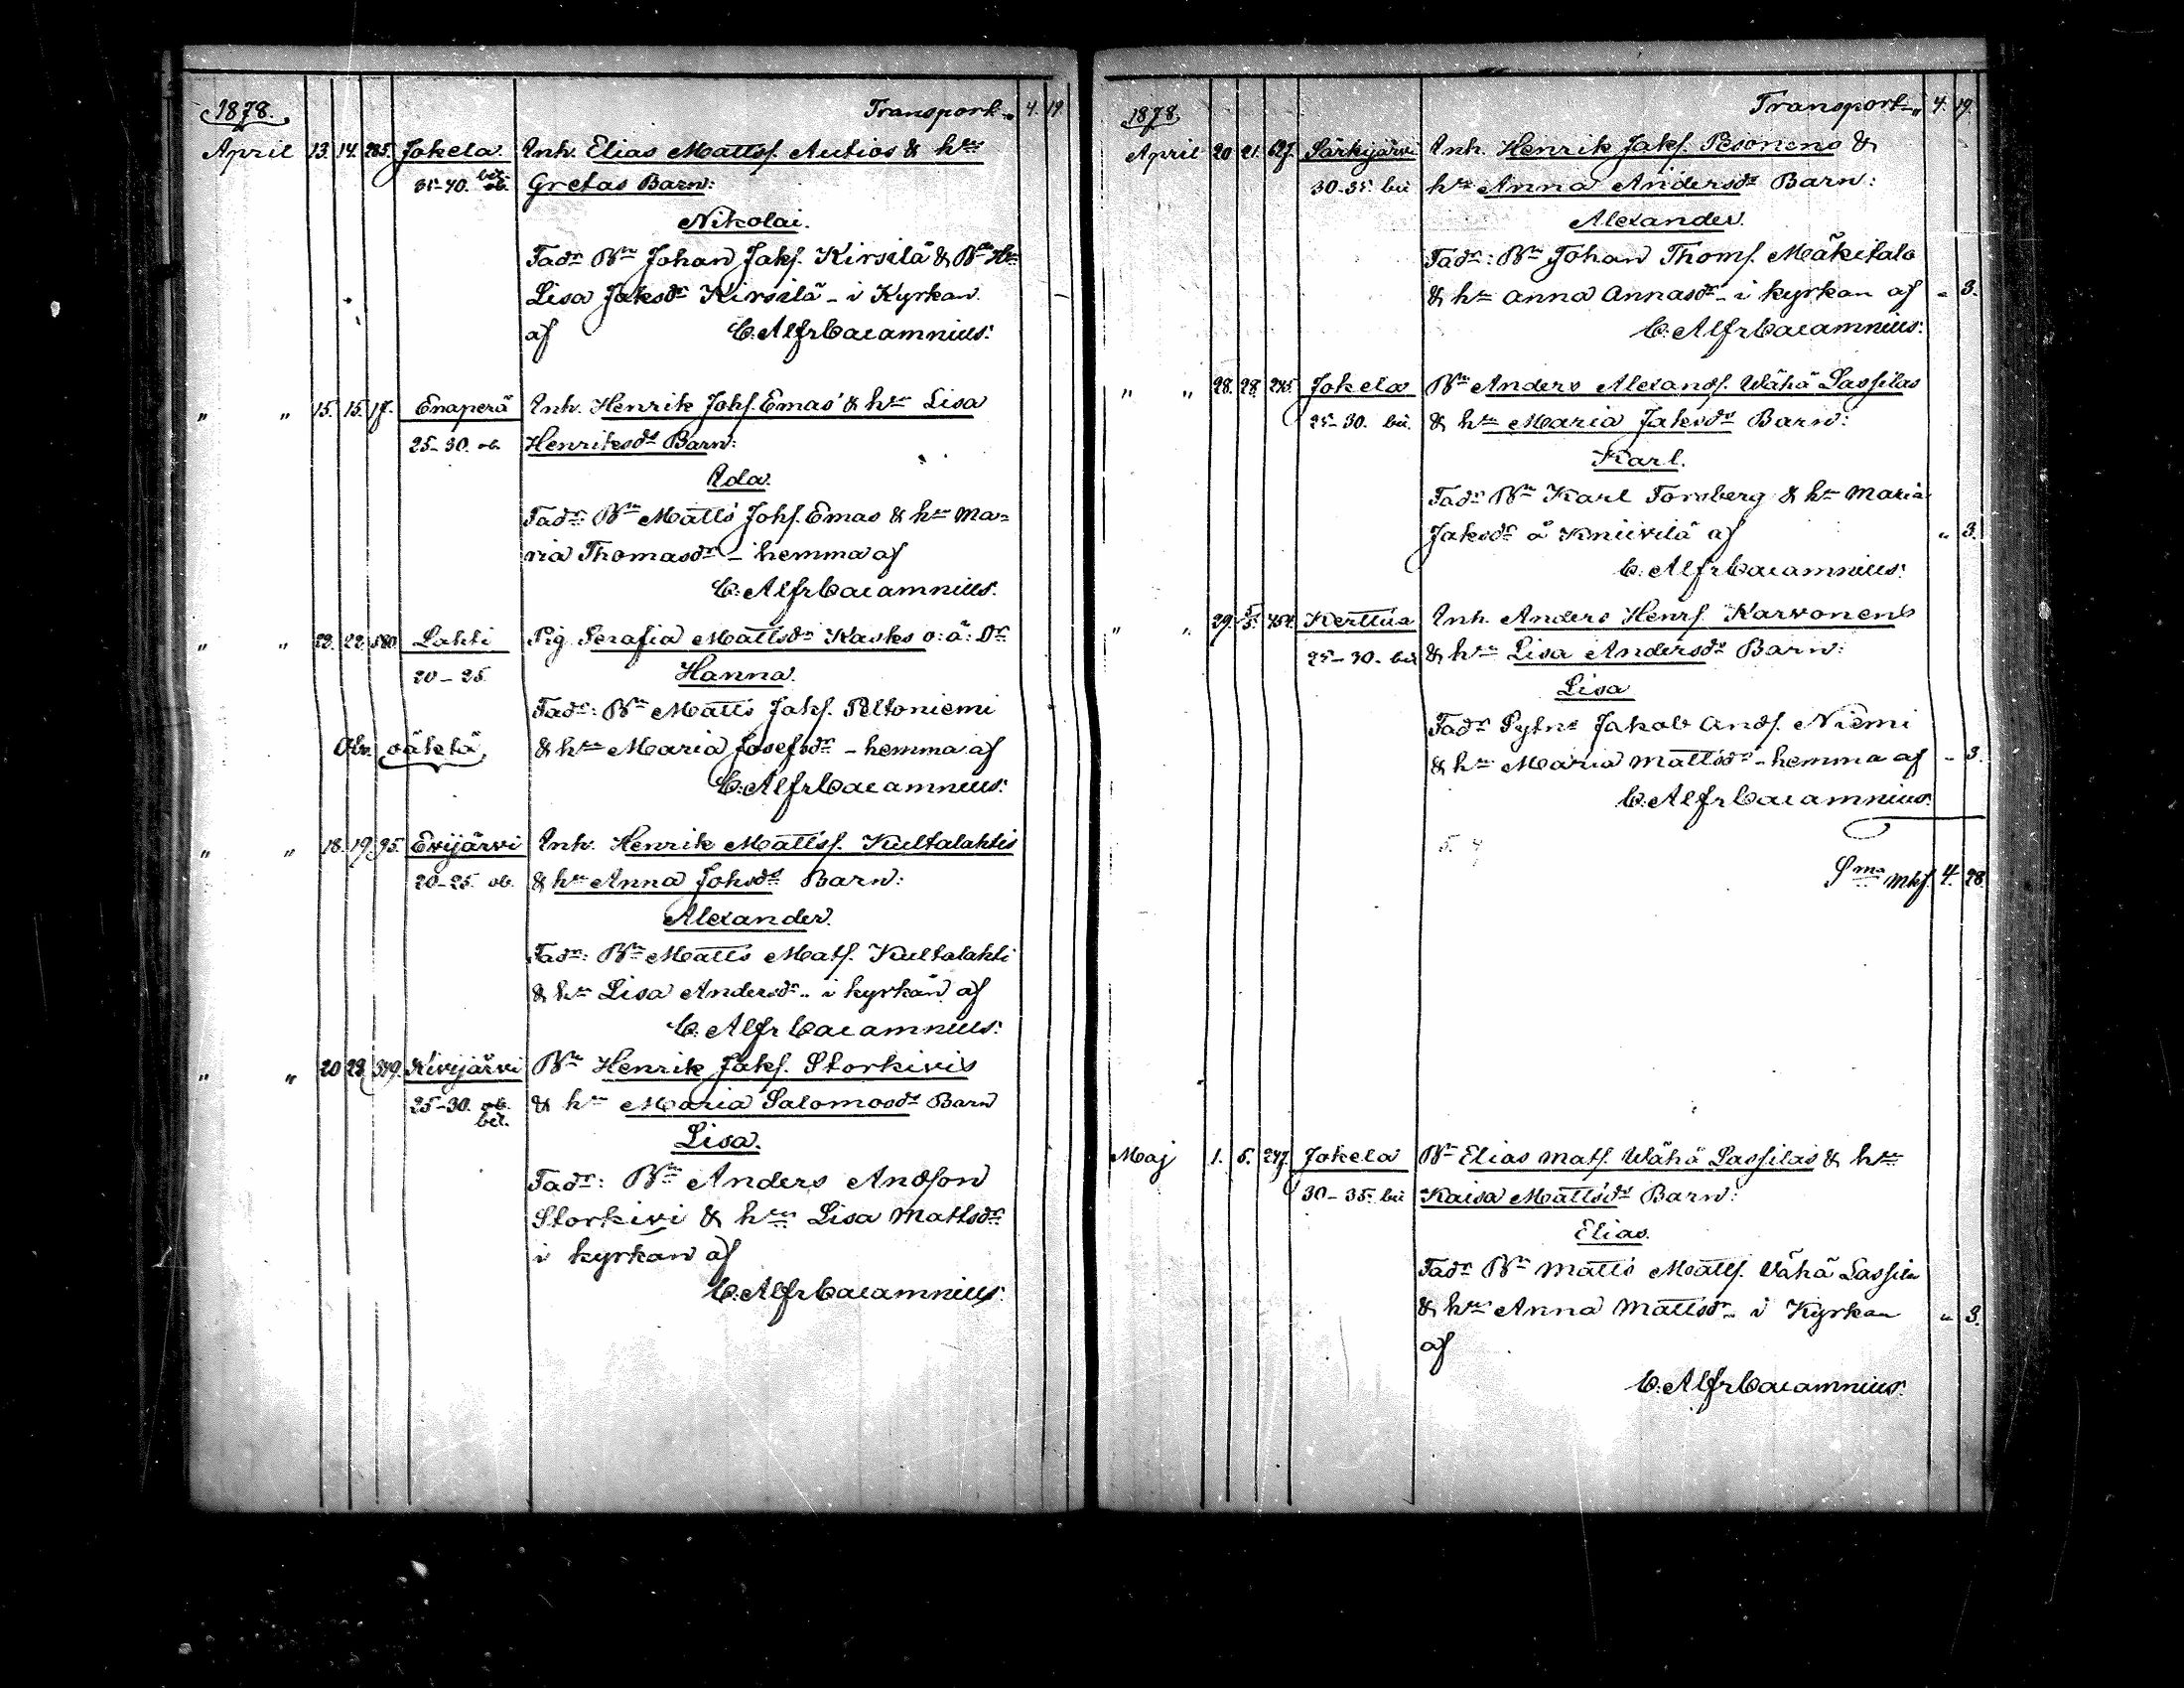 1878. Transport „ 4. 19
April 13. 14. 285. Jokela. Inh. Elias Mattsf. Autios & hu
35-40. bet. ob. Gretas Barn:
Nikolai.
Fadr Bn Johan Jakf. Kirsilä & Bn Hu
Lisa Jaksdr Kirsilä - i Kyrkan
af C. Alfr Cajamnius:
„ „ 15. 15. 17. Emaperä Inh. Henrik Johf. Emas & hu Lisa
25-30. ob. Henriksds Barn:
Ada.
Fadr: Bn Matts Johf. Emas & hu Ma=
ria Thomasdr - hemma af
C. Alfr Cajamnius:
„ „ 22. 22. 580. Lahti Pig. Serafia Mattsdr Kasks o: ä: Dr
20-25. Hanna.
Fadr: Bn Matts Jakf. Peltoniemi
Obs. oäkta & hu Maria Josefsdr - hemma af
C. Alfr Cajamnius:
„ „ 18. 19. 95. Evijärvi Inh. Henrik Mattsf. Kultalahtis
20-25. ob. & hu Anna Johsds Barn:
Alexander.
Fadr: Bn Matts Matf. Kultalahti
& hu Lisa Andersdr - i kyrkan af
C. Alfr Cajamnius:
„ „ 20 23 Kivijärvi Bn Henrik Jakf. Storkivis
25-30. ob. bet. & hu Maria Salomosds Barn
Lisa.
Fadr: Bn Anders Andson
Storkivi & hu Lisa Mattsdr
i kyrkan af
C. Alfr Cajamnius:
1878 Transport „ 4. 19.
April 20 21. 127. Särkijärvi Inh. Henrik Jakf. Pesonens &
30-35. bet hu Anna Andersds Barn:
Alexander.
Fadr: Bn Johan Thomf. Mäkitalo
& hu Anna Annasdr - i kyrkan af „ 3.
C. Alfr Cajamnius:
„ „ 28. 28. 245. Jokela Bn Anders Alexandf. Wähä Lassilas
25-30. bet. & hu Maria Jaksds Barn:
Karl.
Fadr Bn Karl Forsberg & hu Maria
Jaksdr å Kniivilä af „ 3.
C. Alfr Cajamnius:
„ „ 29. 5. 454. Kerttua Inh. Anders Henrf. Karvonens
25-30. bet & hu Lisa Andersds Barn:
Lisa
Fadr Sytn: Jakob Andf. Niemi
& hu Maria Mattsdr - hemma af „ 3.
C. Alfr Cajamnius.
Sma mkf. 4. 28
Maj 1. 5. 247. Jokela Bn Elias Matf. Wähä Lassilas & hu
30-35. bet Kaisa Mattsds Barn:
Elias.
Fadr Bn Matts Mattf. Vähä Lassila
& hu Anna Mattsdr - i Kyrkan „ 3.
af
C. Alfr Cajamnius: